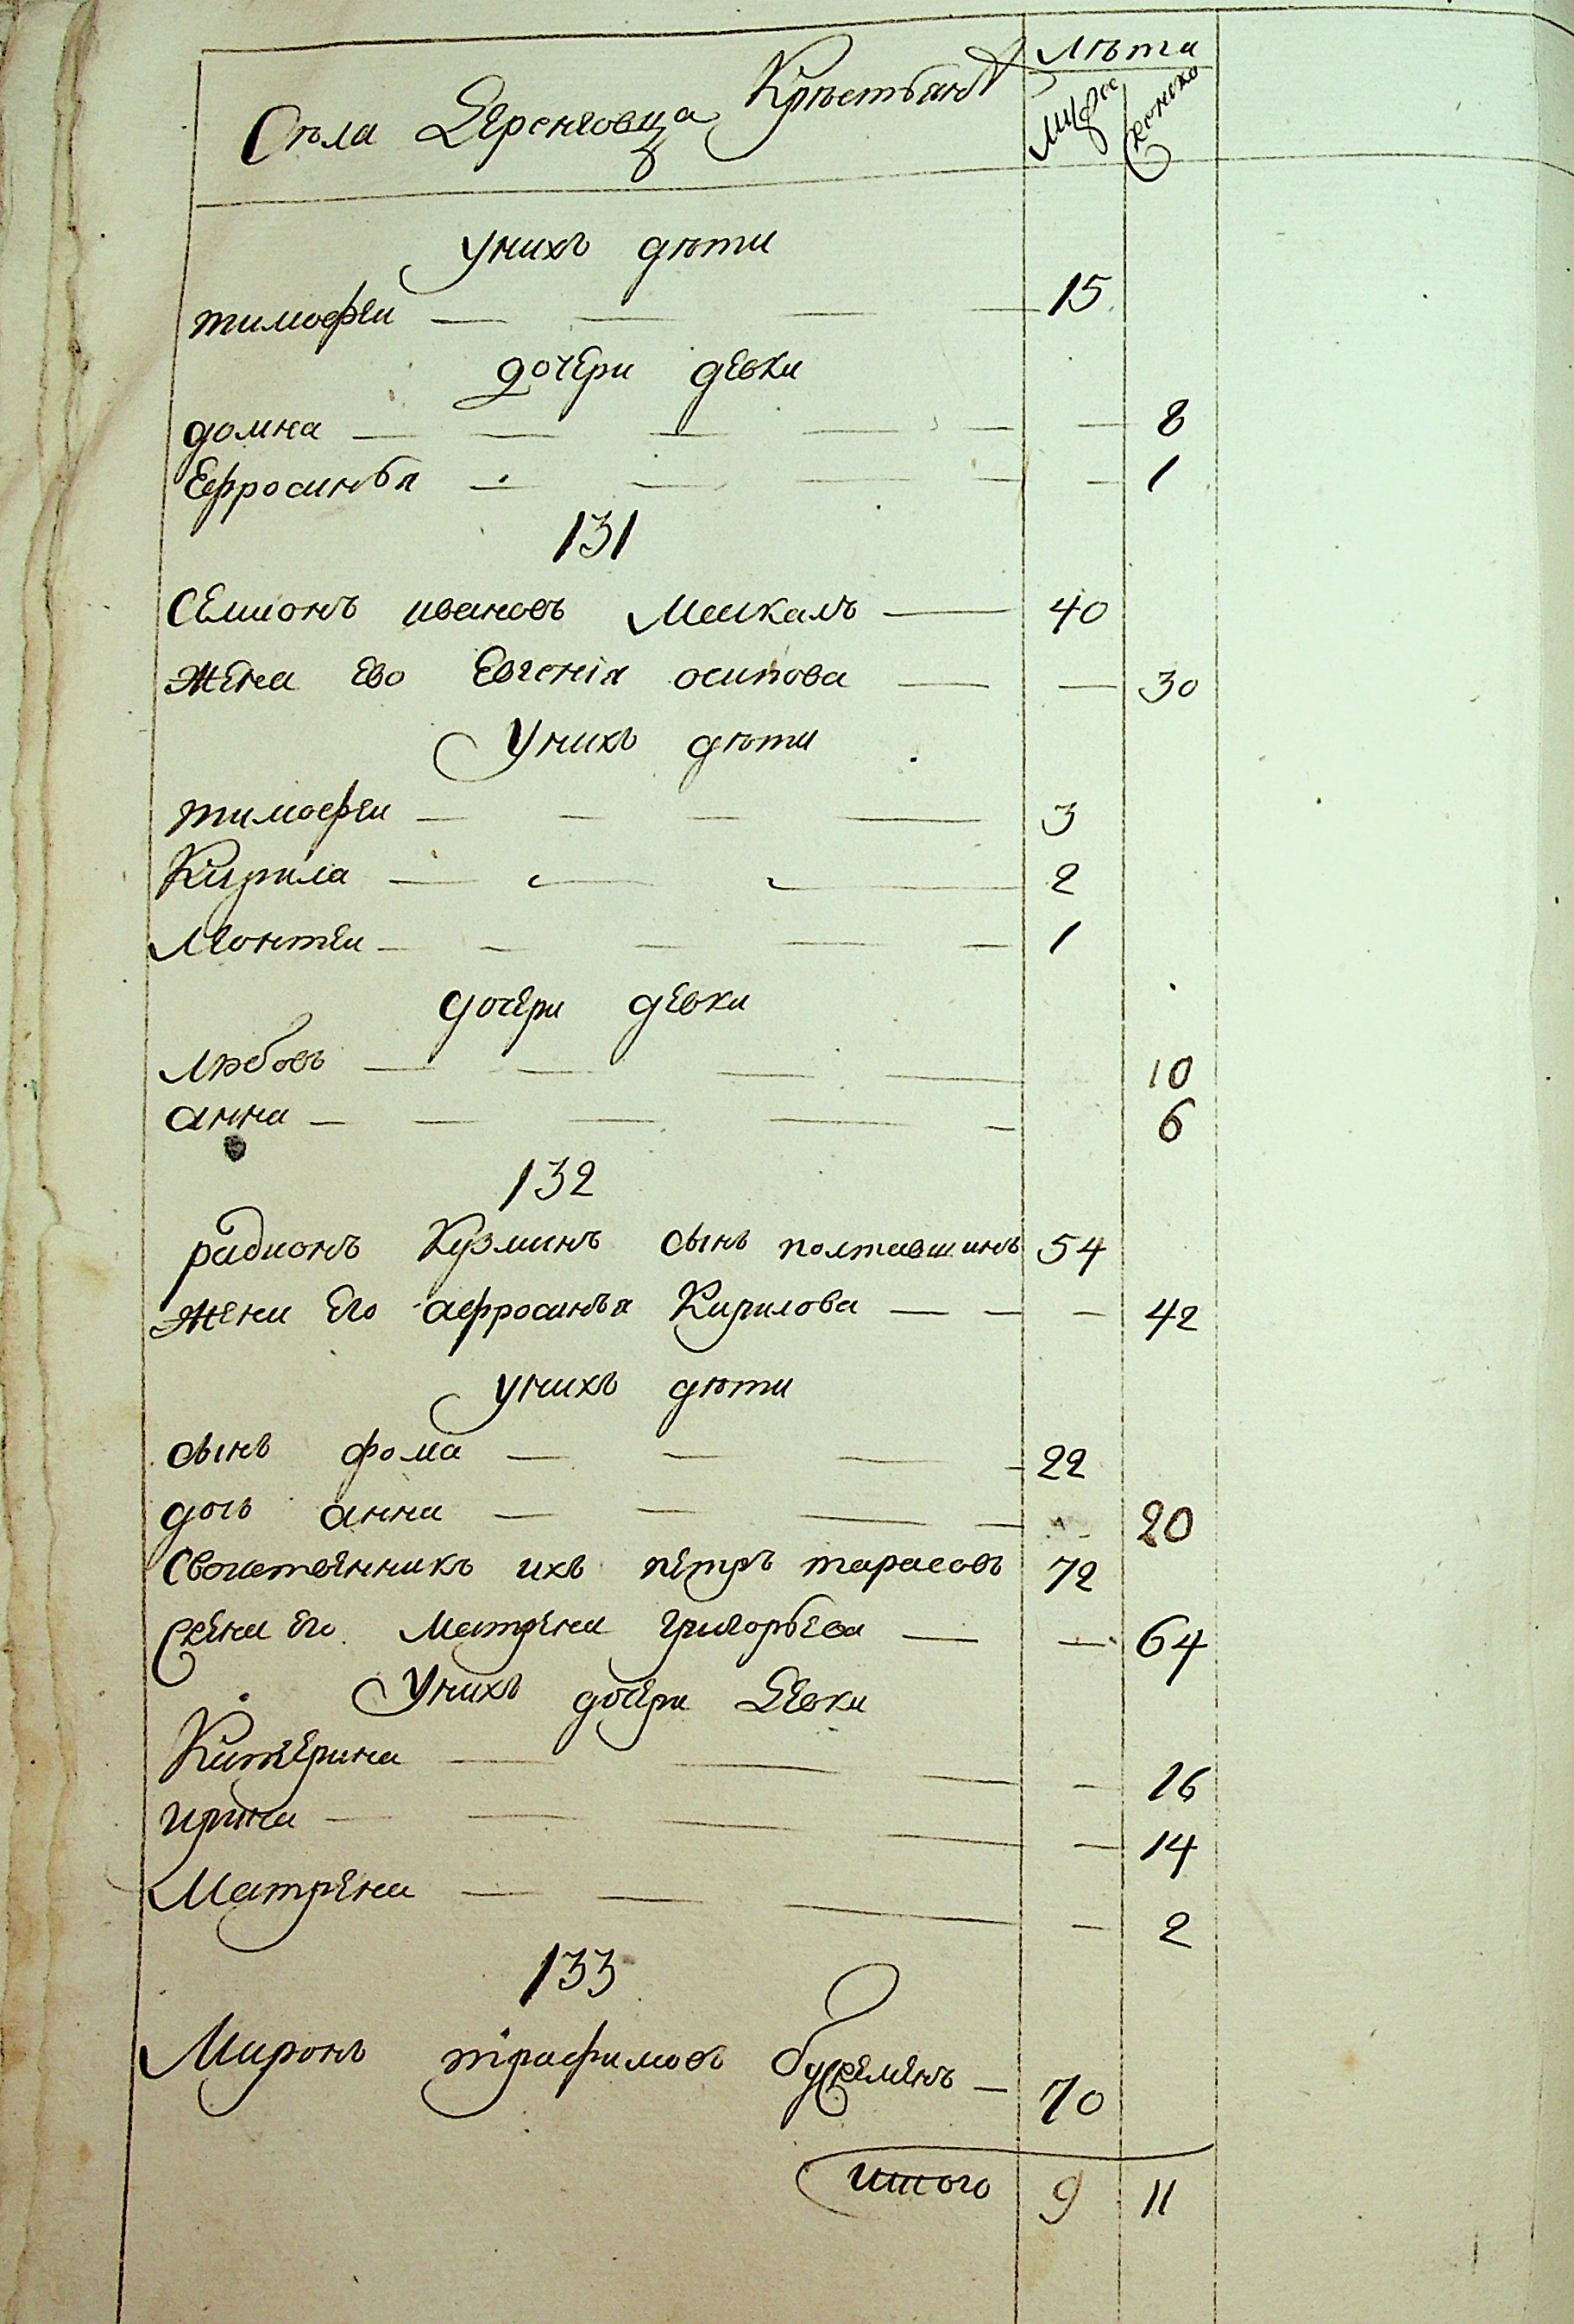 Села Деренговца Крестьянъ
Лѣта
Мужес
женско
У нихъ дѣти
тимофеи — — — — 15
дочери девки
домна — — — — — — 8
Ефросинья — — — — — 1
131
Семионъ ивановъ Мошкалъ — 40
жена Ево Евгенiя осипова — — 30
У нихъ дѣти
тимофеи — — — — 3
Кирила — — — 2
Леонтеи — — — — — 1
дочери девки
любовь — — — — 10
анна — — — — — 6
132
радионъ Кузминъ сынъ полтавшинъ 54
жена Его афросинья Кирилова — — — 42
у нихъ дѣти
сынъ фома — — — — 22
дочь анна — — — — 20
Своиственникъ ихъ петръ тарасовъ 72
жена Его Матрена григорьева — — 64
У нихъ дочери Девки
Катерина — — — — 16
ирина — — — — — 14
Матрена — — — — 2
133
Миронъ трафимовъ бужеменъ — 70
итого 9 11